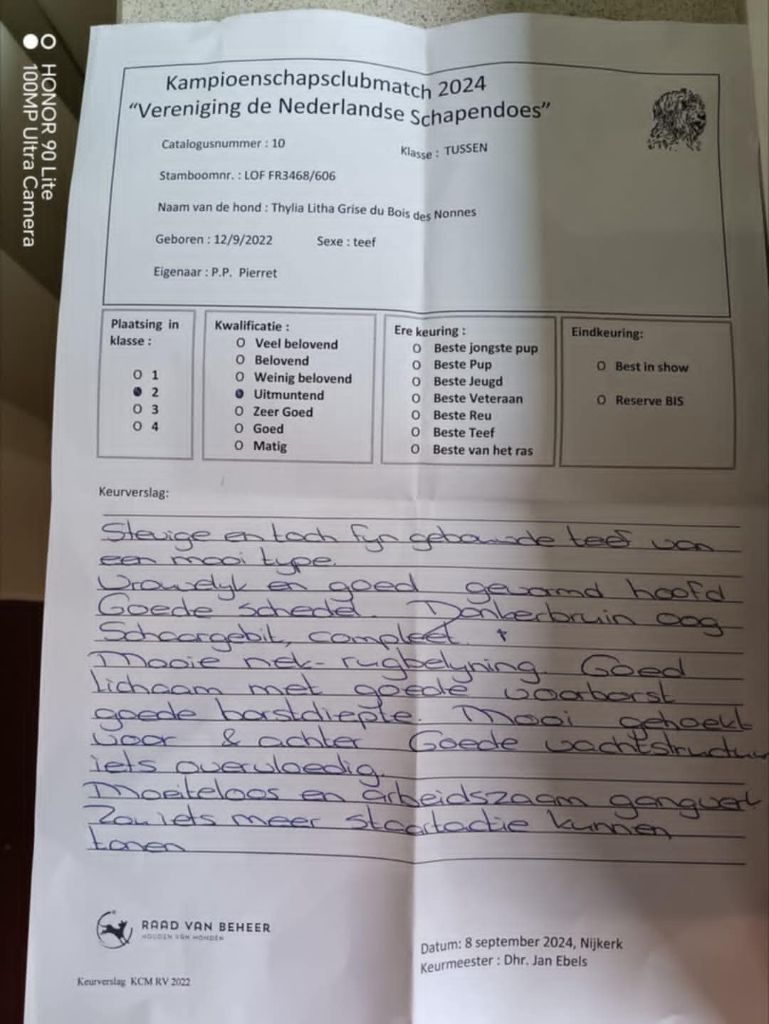 HONOR 90 Lite
100MP Ultra Camera
Kampioenschapsclubmatch 2024
"Vereniging de Nederlandse Schapendoes"
Catalogusnummer : 10 Klasse : TUSSEN
Stamboomnr. : LOF FR3468/606
Naam van de hond : Thylia Litha Grise du Bois des Nonnes
Geboren : 12/9/2022 Sexe : teef
Eigenaar : P.P. Pierret
Plaatsing in
klasse :
O 1
2
O 3
O 4
Kwalificatie :
O Veel belovend
O Belovend
O Weinig belovend
Uitmuntend
O Zeer Goed
O Goed
O Matig
Ere keuring :
O Beste jongste pup
O Beste Pup
O Beste Jeugd
O Beste Veteraan
O Beste Reu
O Beste Teef
O Beste van het ras
Eindkeuring:
O Best in show
O Reserve BIS
Keurverslag:
Stevige en toch fyn gebouwde teef van
een mooi type.
Vrouwelyk en goed gevormd hoofd
Goede schedel. Donkerbruin oog
Schaargebit, compleet.
Mooie nek-rugbelyning. Goed
lichaam met goede voorborst
goede borstdiepte. Mooi gehoekt
voor & achter Goede vachtstructuur
iets overvloedig.
Moeiteloos en arbeidszaam gangwerk
Zou iets meer staartactie kunnen
tonen
RAAD VAN BEHEER
HOUDEN VAN HONDEN
Datum: 8 september 2024, Nijkerk
Keurmeester : Dhr. Jan Ebels
Keurverslag KCM RV 2022